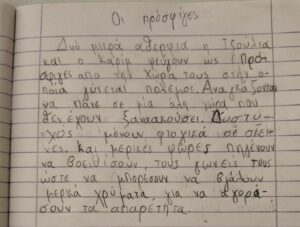 Οι πρόσφιγες
Δυό μικρά αδερφια η Τζούλια
και ο Καρίμ φεύγουν ως πρό-
σφιγες απο την χώρα τους στην ο-
ποία γίνεται πόλεμος. Αναγκάζονται
να πάνε σε μία άλλη χώρα που
δεν έχουν ξανακούσει. Δυστυ-
χός μένουν φτοχικά σε σκεί-
νες, και μερικές φώρες πηγένουν
να βοειθίσουν, τους γωνείς τους
ώστε να μπορέσουν να βγάλουν
μερικά χρίματα, για να αγορά-
σουν τα απαρετητα.